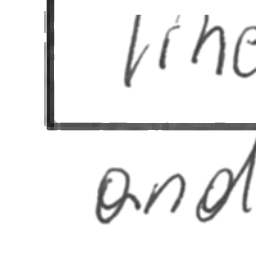 line
and